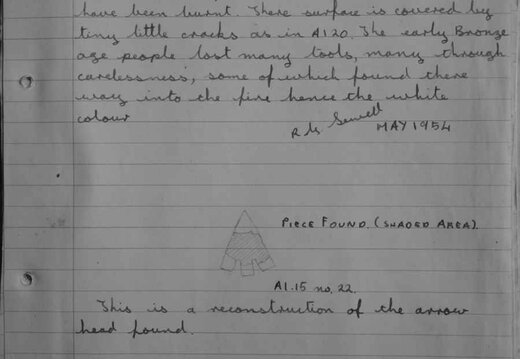 have been burnt. There surface is covered by
tiny little cracks as in A120. The early Bronze
age people lost many tools, many through
carelessness, some of which found there
way into the fire hence the white
colour
Sewell
MAY 1954
PIECE FOUND. (SHADED AREA).
A1.15 no. 22.
This is a reconstruction of the arrow
head found.